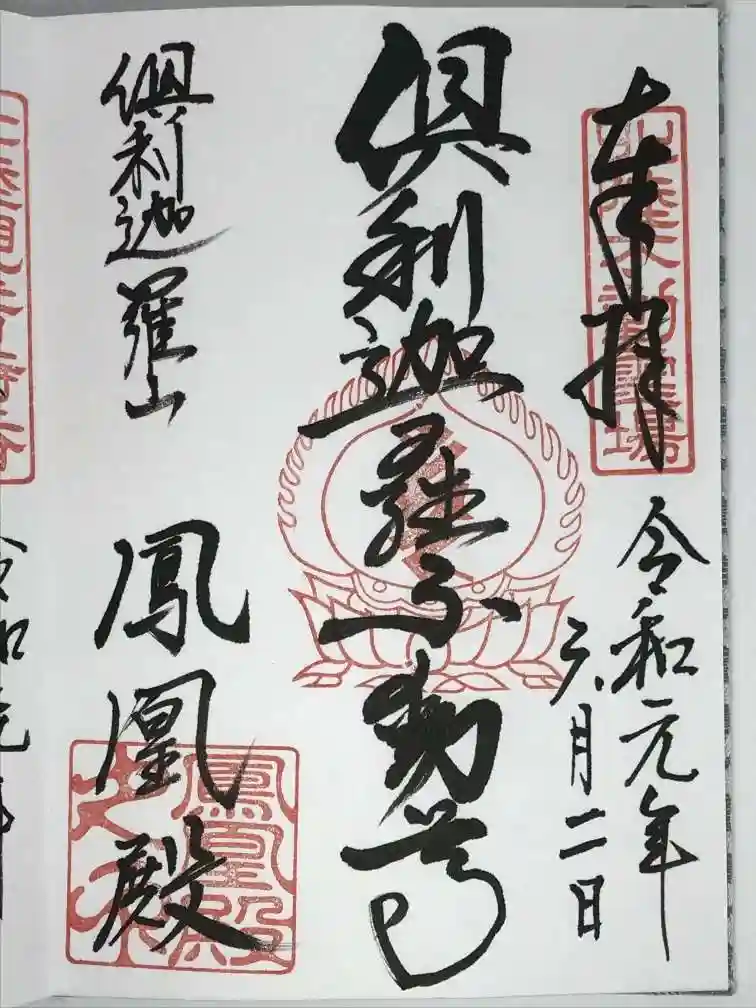 奉拝
令和元年
六月二日
倶利迦羅不動尊
倶利迦羅山
鳳凰殿
鳳凰殿之印
令和元年